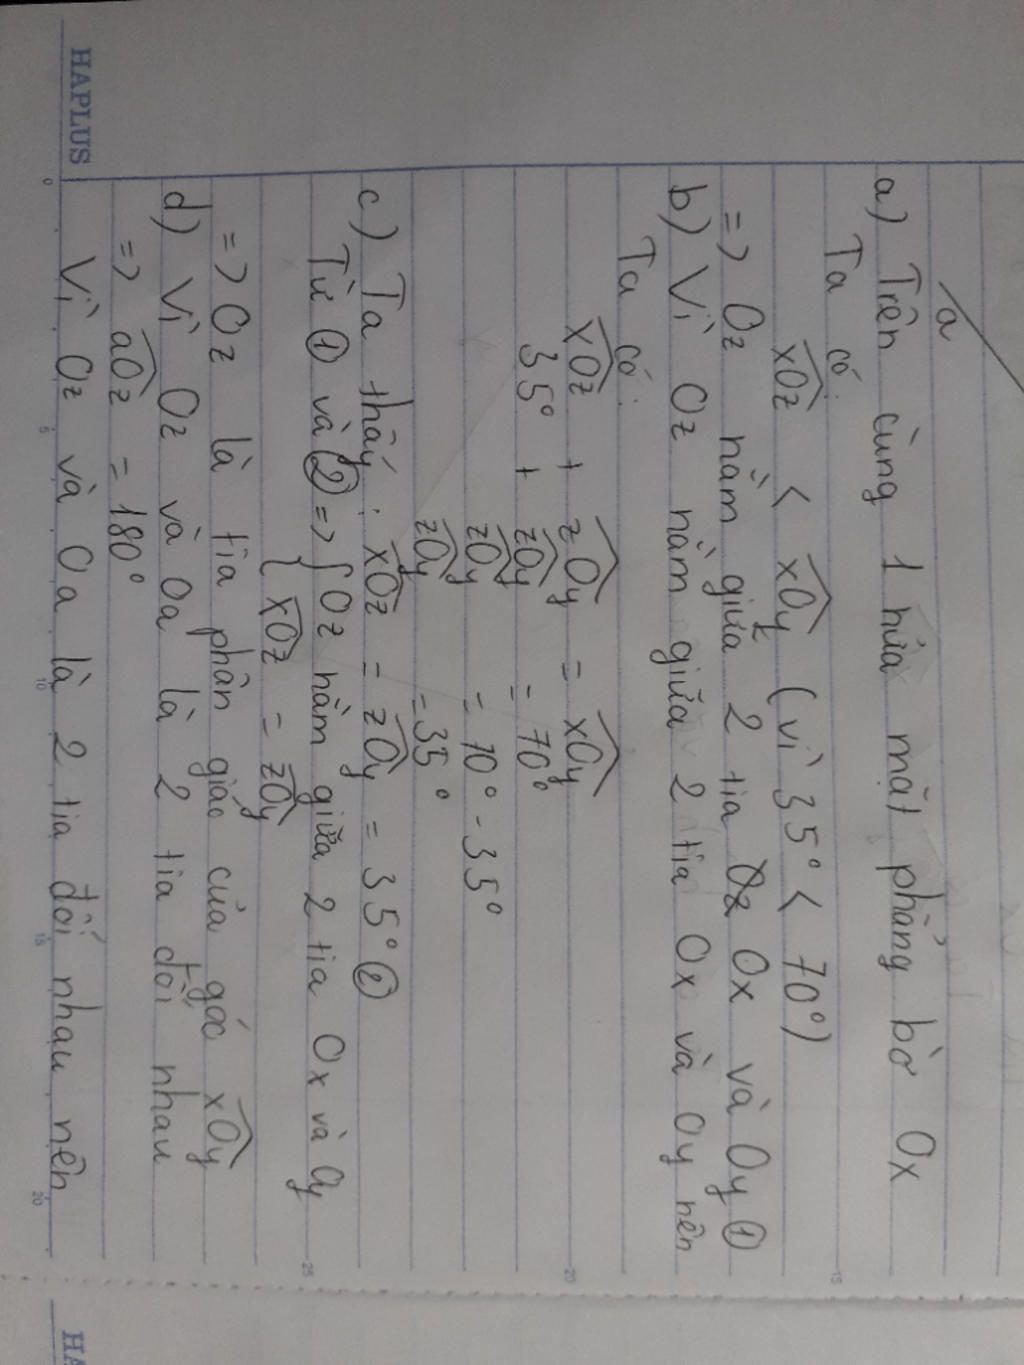 a
a) Trên cùng 1 nửa mặt phẳng bờ Ox
Ta có:
xOz < xOy (vì 35° < 70°)
=> Oz nằm giữa 2 tia Ox và Oy ①
b) Vì Oz nằm giữa 2 tia Ox và Oy nên
Ta có:
xOz + zOy = xOy
35° + zOy = 70°
zOy = 70° - 35°
zOy = 35°
c) Ta thấy: xOz = zOy = 35° ②
Từ ① và ② => { Oz nằm giữa 2 tia Ox và Oy
{ xOz = zOy
=> Oz là tia phân giác của góc xOy
d) Vì Oz và Oa là 2 tia đối nhau
=> aOz = 180°
Vì Oz và Oa là 2 tia đối nhau nên
HAPLUS
0
5
10
15
20
15
20
25
HA